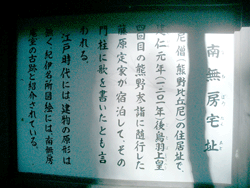 南無房宅址
尼僧(熊野比丘尼)の住居址で
建仁元年(一二〇一年)後鳥羽上皇
四回目の熊野御詣に随行した
藤原定家が宿泊して、その
門柱に歌を書いたとも言
われる。
江戸時代には建物の原形は
無く紀伊名所図絵には、南無房
庵室の古跡と紹介されている。